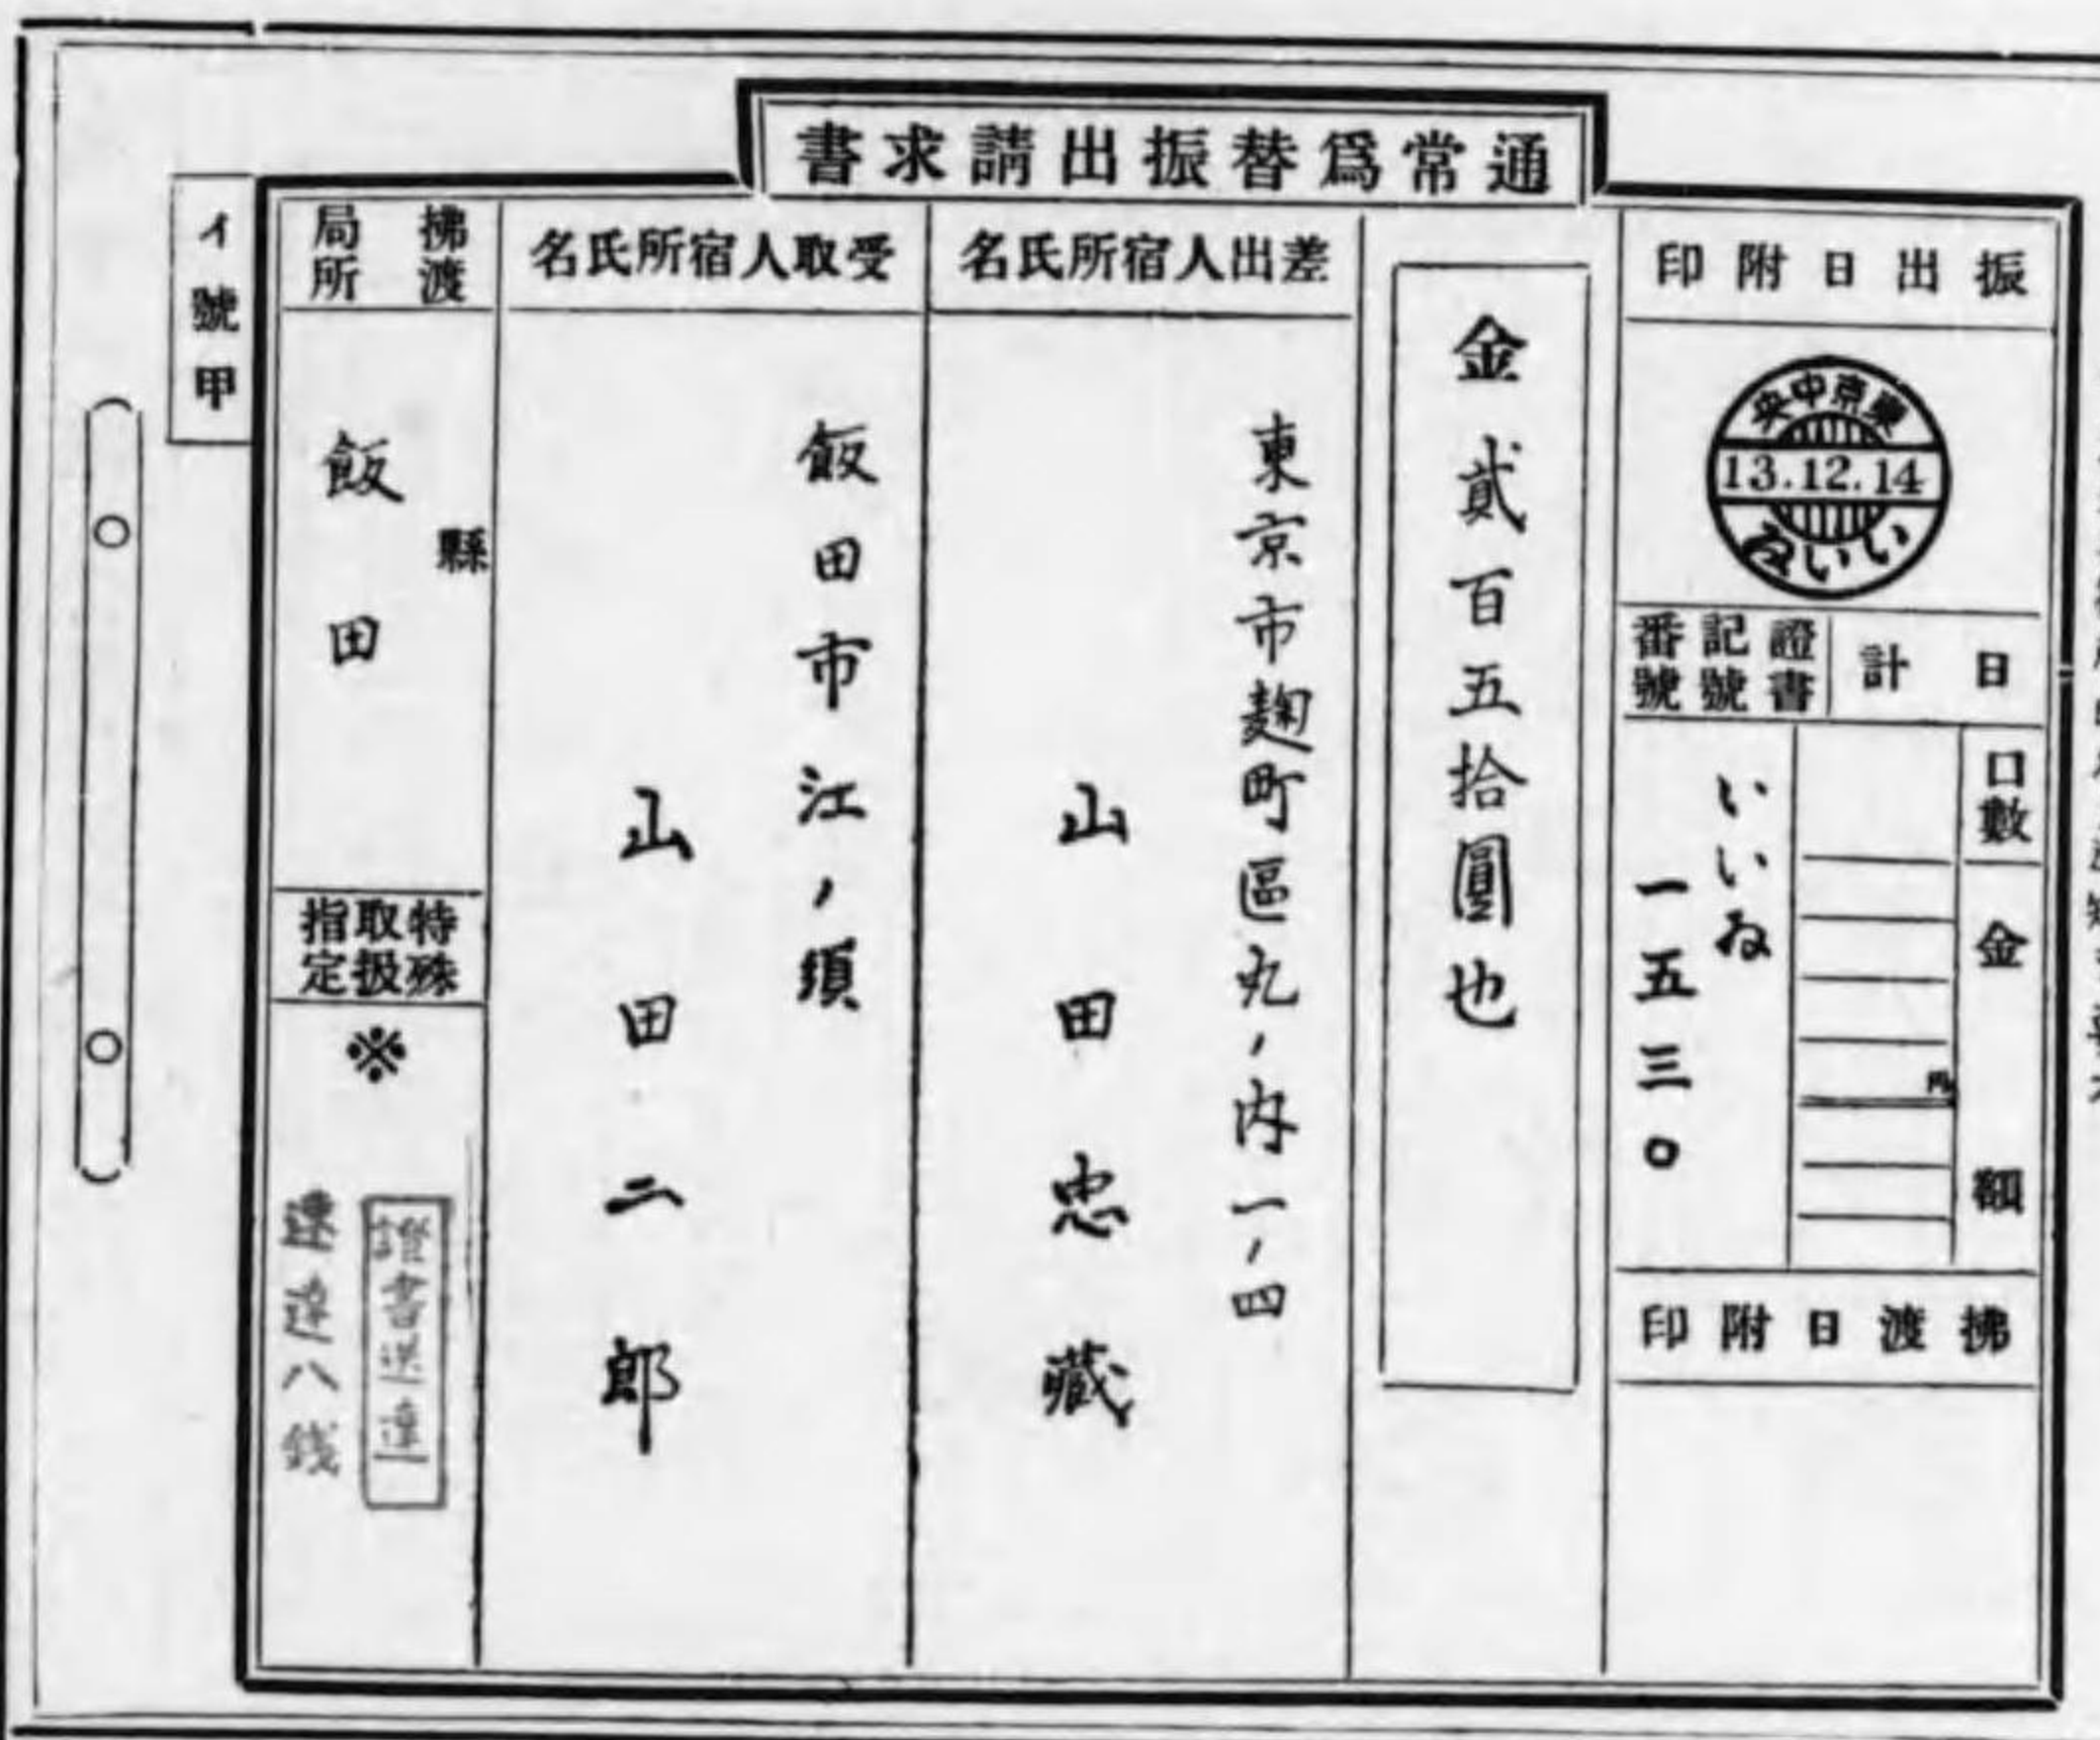 通常爲替振出請求書
振出日附印
東京中央
13.12.14
いいゐ
日計
口數
金額
円
證書
記號
番號
いいゐ
一五三〇
拂渡日附印
金貳百五拾圓也
差出人宿所氏名
東京市麹町區丸ノ内一ノ四
山田忠藏
受取人宿所氏名
飯田市江ノ須
山田二郎
拂渡
局所
縣
飯田
特殊
取扱
指定
※
證書送達
速達八錢
イ號甲